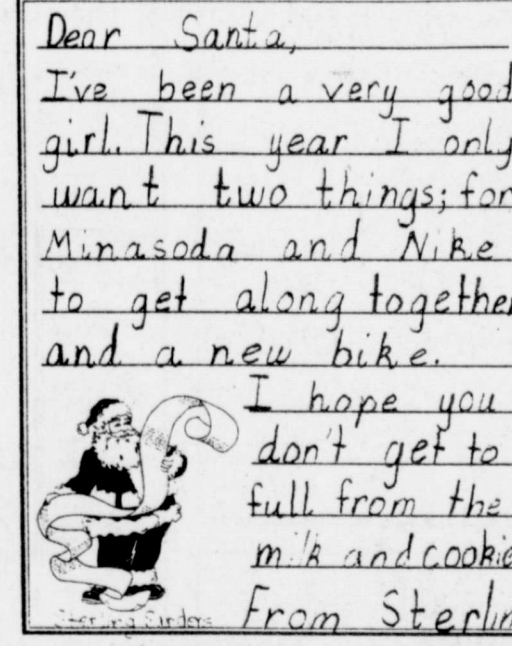 Dear Santa,
I've been a very good
girl. This year I only
want two things; for
Minasoda and Nike
to get along together
and a new bike.
I hope you
don't get to
full from the
milk and cookie
From Sterlin
Sterling Sanders